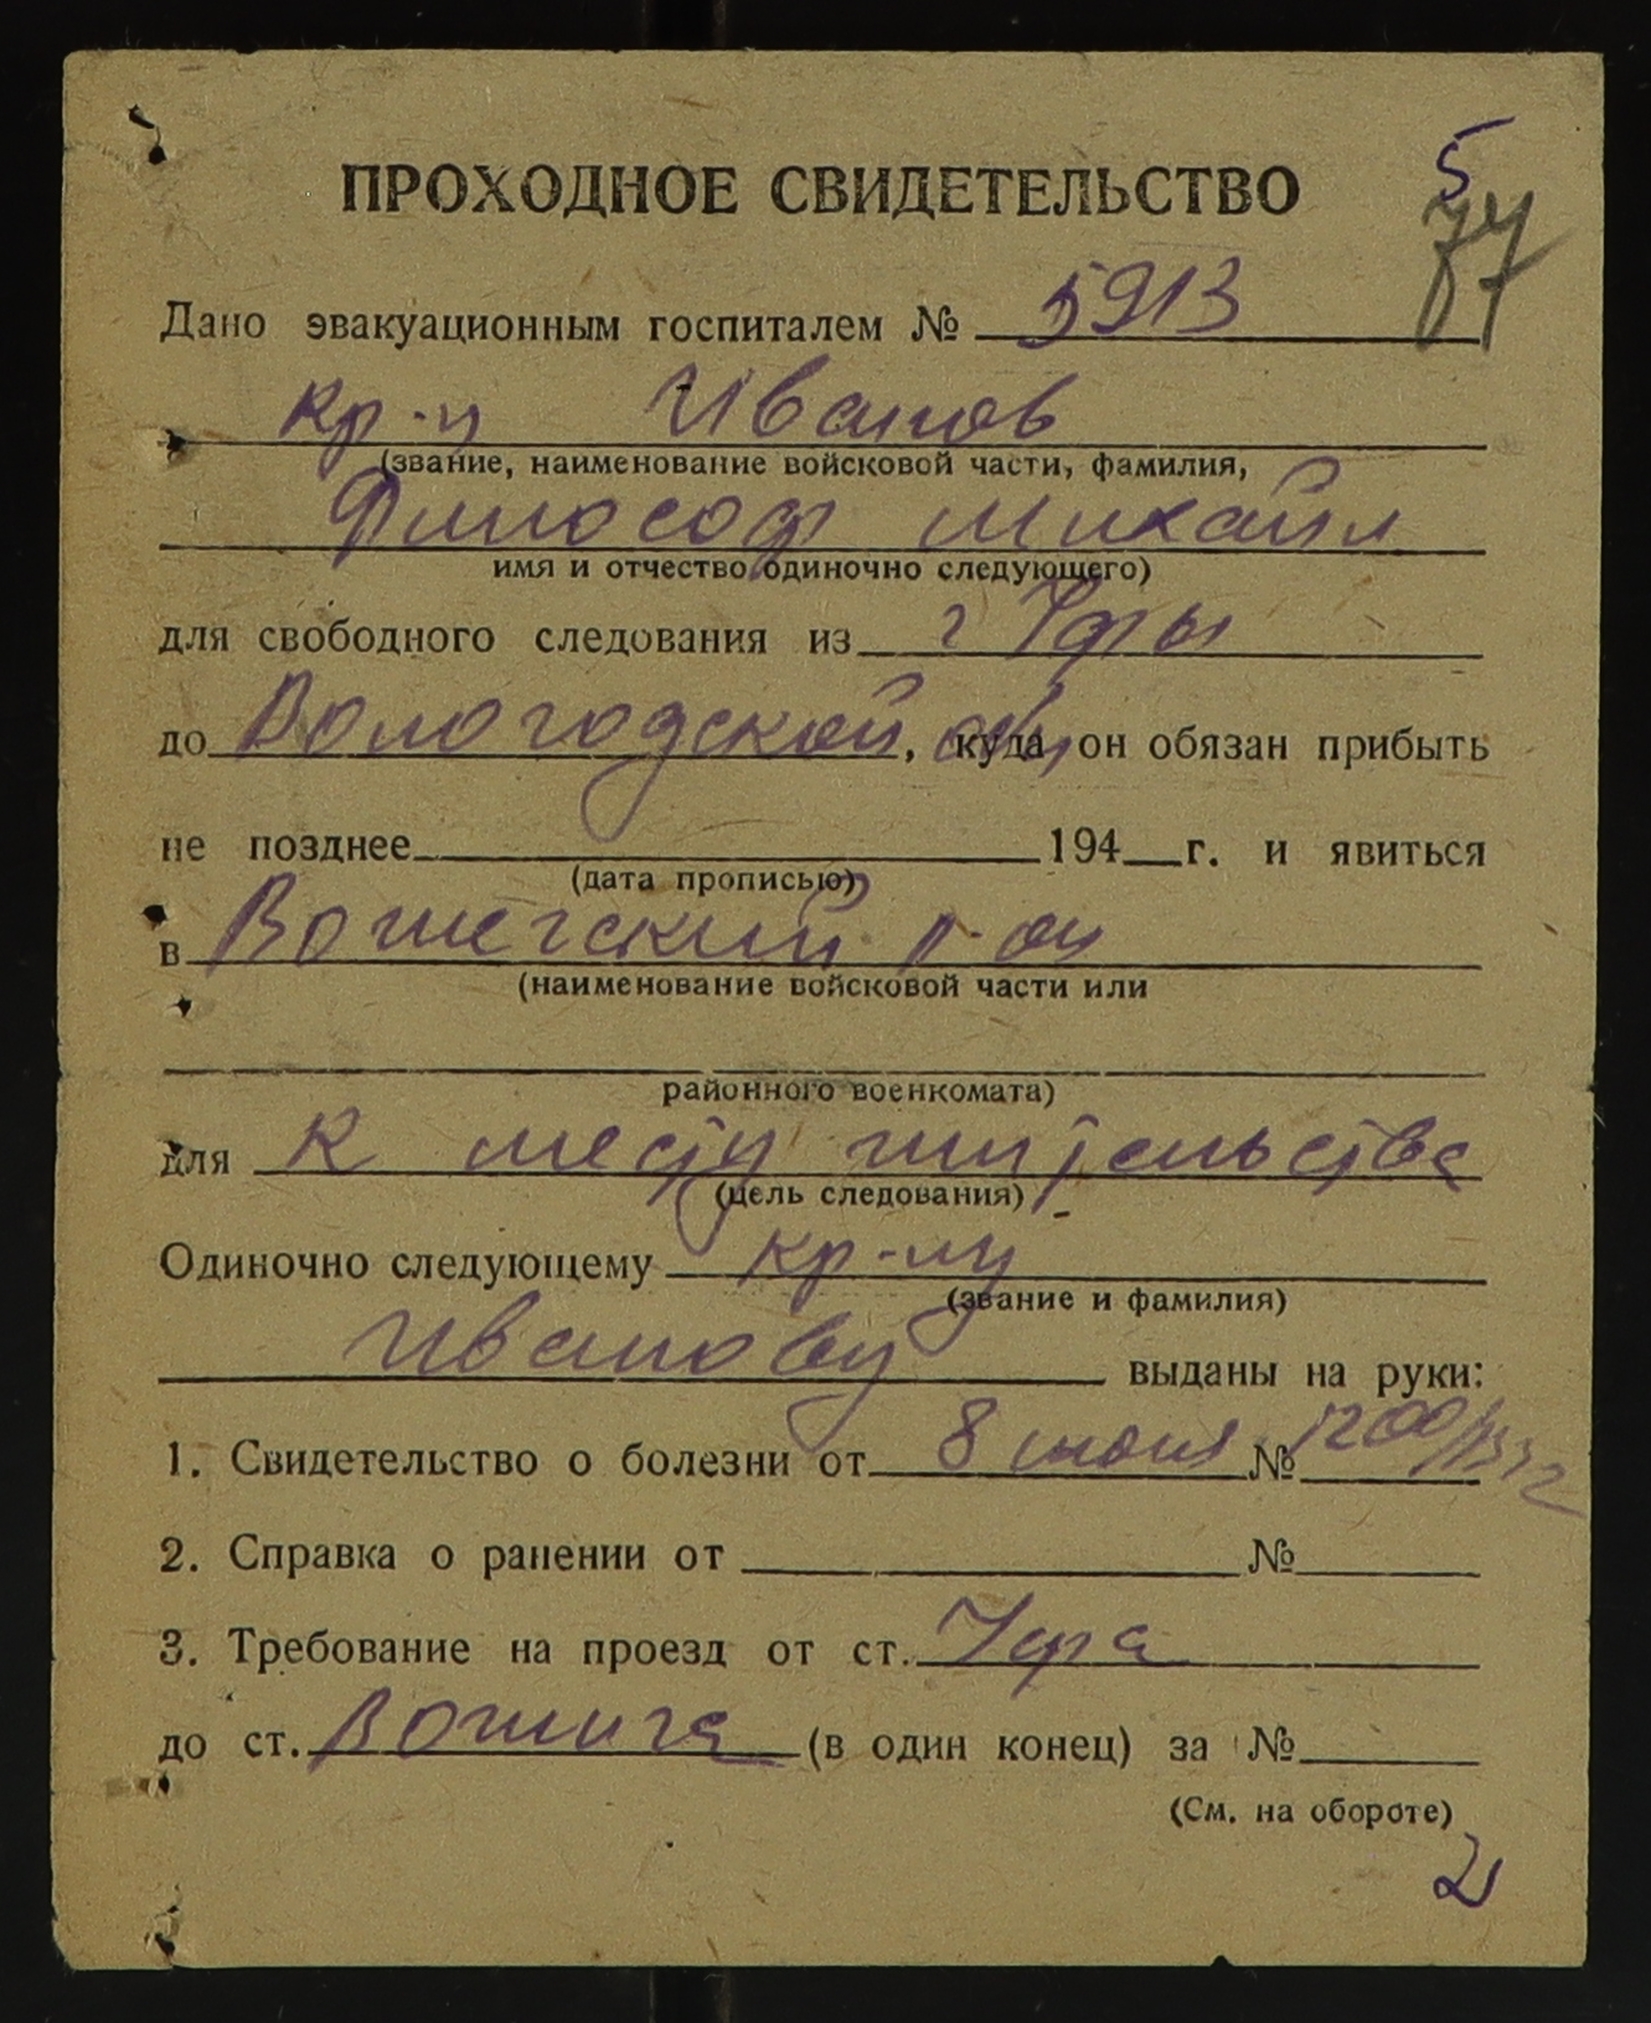 5
77
ПРОХОДНОЕ СВИДЕТЕЛЬСТВО
Дано эвакуационным госпиталем № 5913
кр-ц Иванов
(звание, наименование войсковой части, фамилия,
Философ Михайл
имя и отчество одиночно следующего)
для свободного следования из г Уфы
до Вологодской обл, куда он обязан прибыть
не позднее 194 г. и явиться
(дата прописью)
в Вожегский р-он
(наименование войсковой части или
районного военкомата)
для к месту жительства
(цель следования)
Одиночно следующему кр-цу
(звание и фамилия)
Иванову выданы на руки:
1. Свидетельство о болезни от 8 июня №
2. Справка о ранении от №
3. Требование на проезд от ст. Уфа
до ст. Вожига (в один конец) за №
(См. на обороте)
2